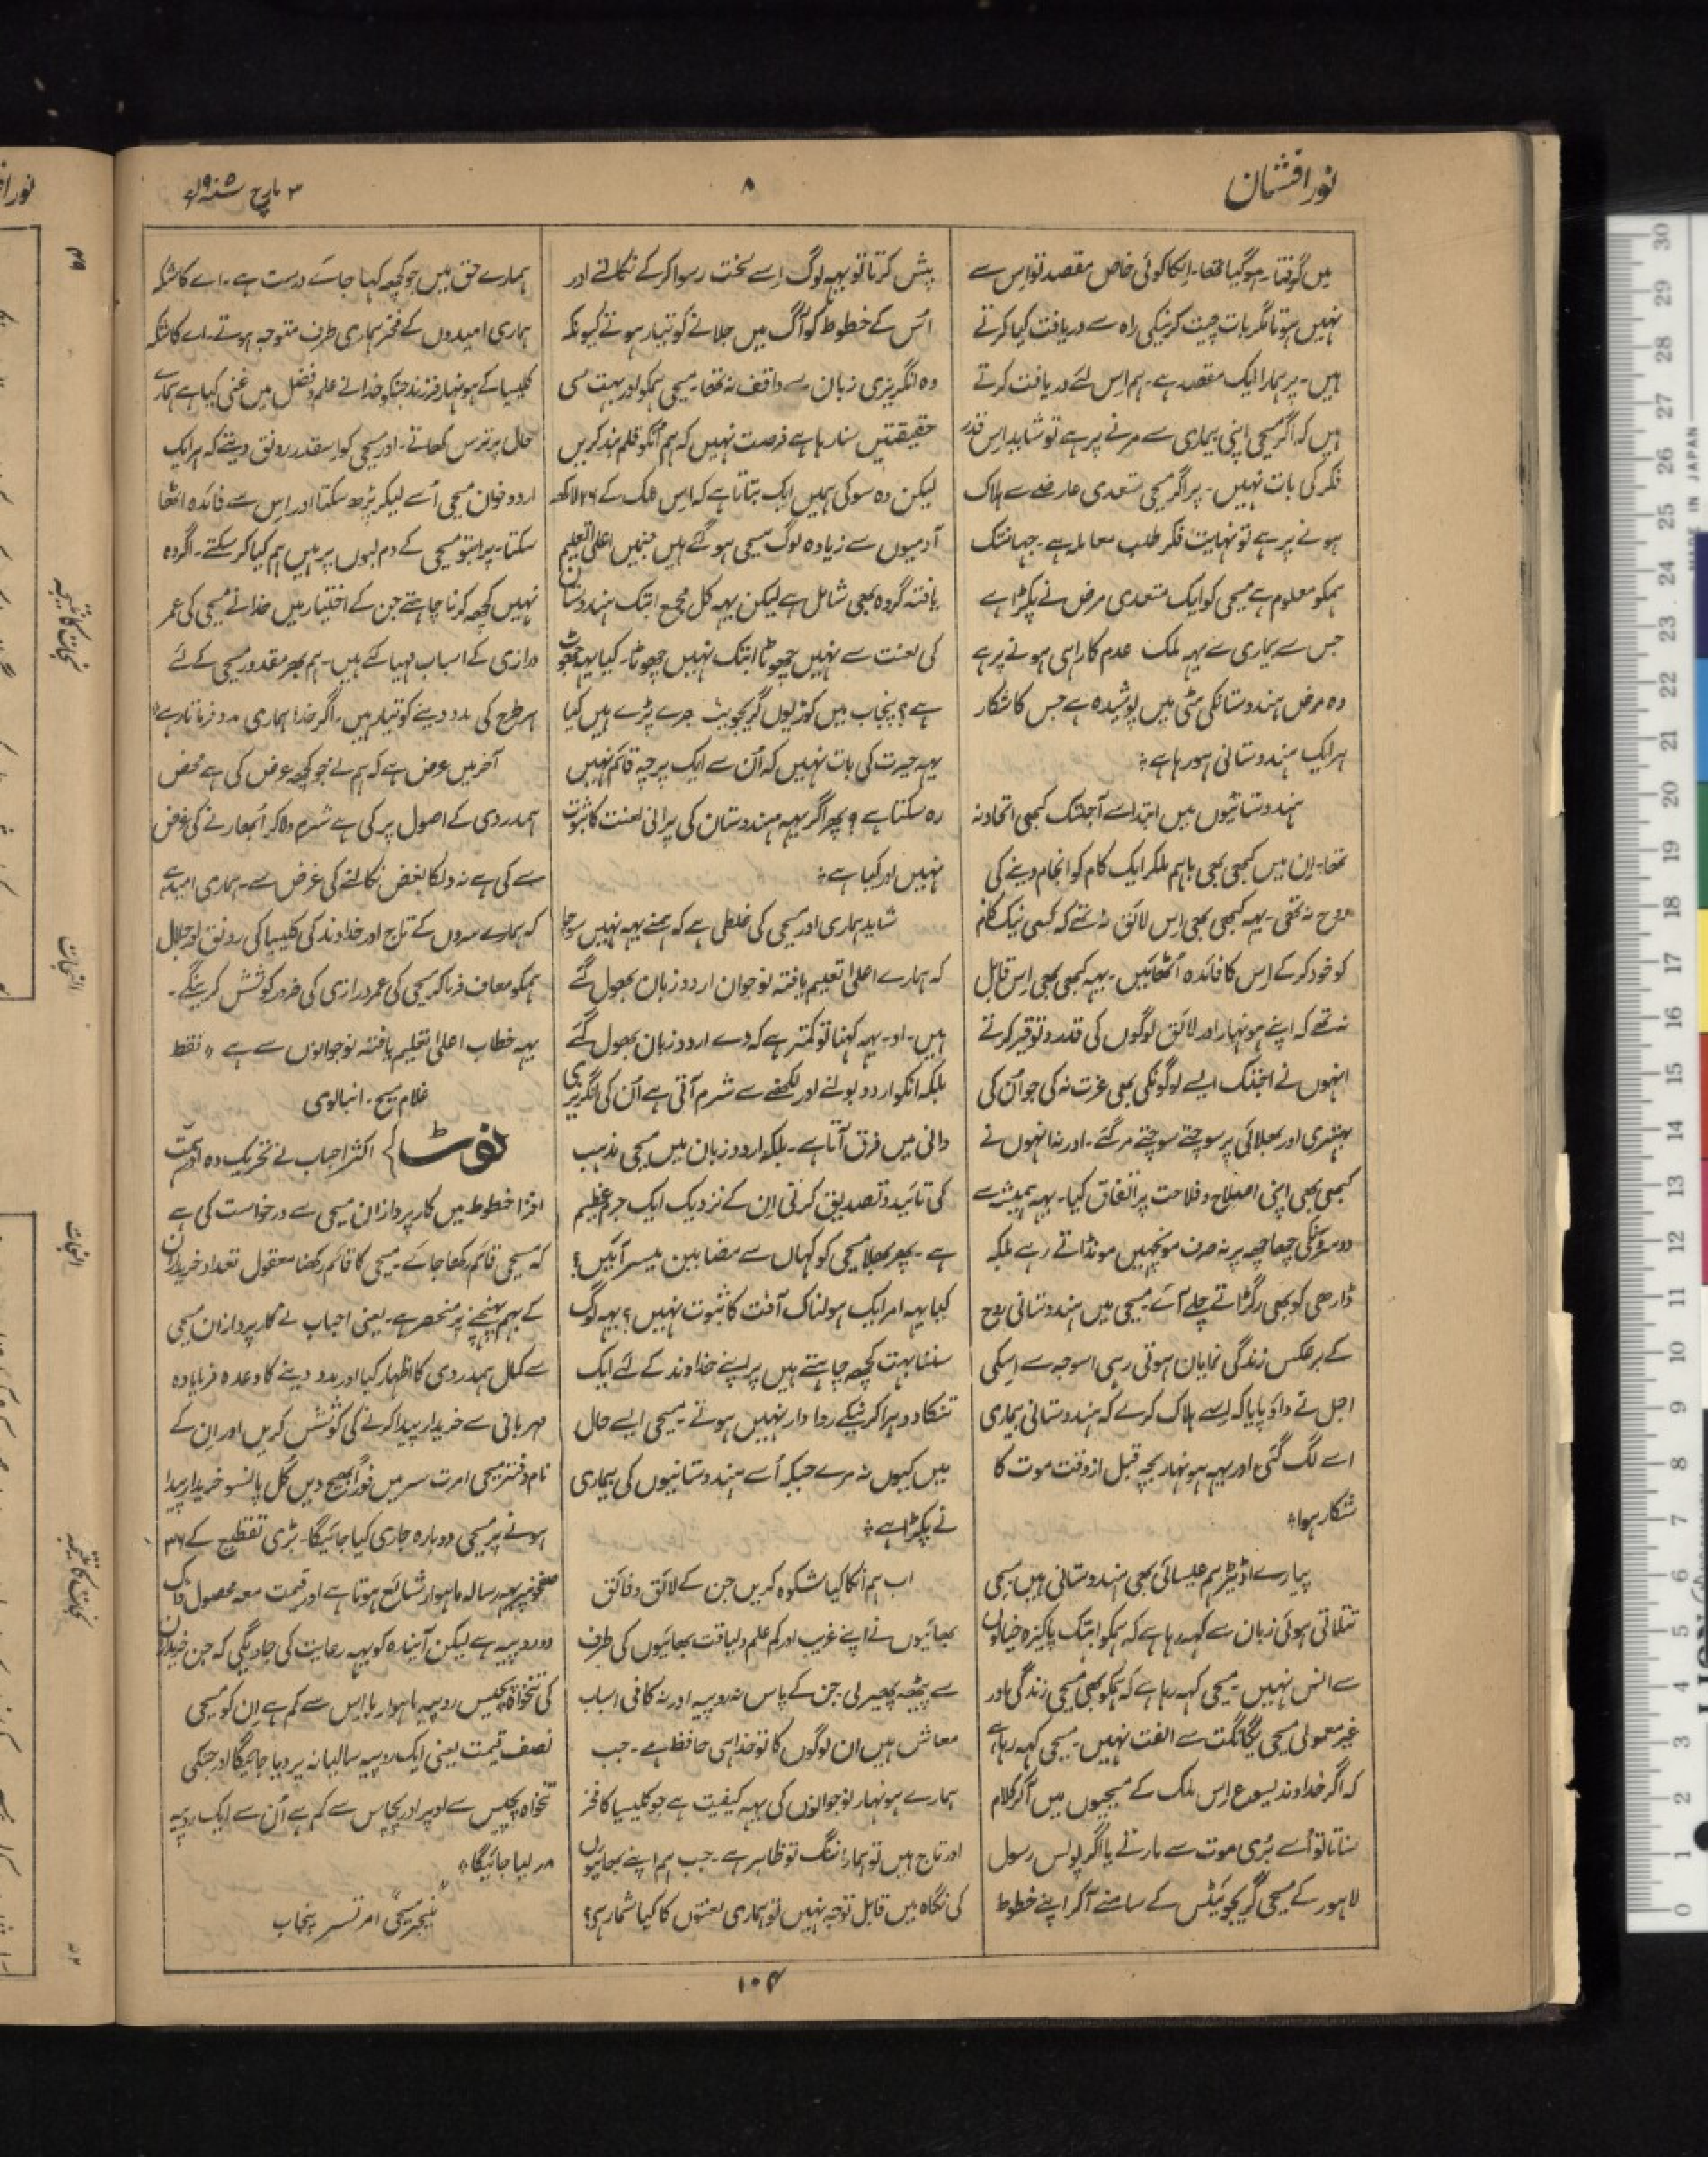 نور افشان
۸
۳ مارچ سنہ ۱۹۰۵ء
میں گرفتا۔ ہو گیا تھا۔ اِنکا کوئی خاص مقصد تو اِس سے
نہیں ہوتا مگر بات چیت کرنیکی راہ سے دریافت کیا کرتے
ہیں۔ پر ہمارا ایک مقصد ہے۔ ہم اِس لئے دریافت کرتے
ہیں کہ اگر مسیحی اپنی بیماری سے مرنے پر ہے تو شاید اِس قدر
فکر کی بات نہیں۔ پر اگر مسیحی متعدی عارضے سے ہلاک
ہونے پر ہے تو نہایت فکر طلب معاملہ ہے۔ جہانتک
ہمکو معلوم ہے مسیحی کو ایک متعدی مرض نے پکڑا ہے
جس سے بیماری سے یہہ ملک عدم کا راہی ہونے پر ہے
وہ مرض ہندوستانکی مٹی میں پوشیدہ ہے جس کا شکار
ہر ایک ہندوستانی ہو رہا ہے؞
ہندوستانیوں میں ابتدا سے آجتک کبھی اتحاد نہ
تھا۔ اِن میں کبھی بھی باہم ملکر ایک کام کو انجام دینے کی
روح نہ تھی۔ یہہ کبھی بھی اِس لائق نہ تھے کہ کسی نیک کام
کو خود کر کے اِس کا فائدہ اُٹھائیں۔ یہہ کبھی بھی اِس قابل
نہ تھے کہ اپنے ہونہار اور لائق لوگوں کی قدر و توقیر کرتے
انہوں نے ابتک ایسے لوگونکی بھی عزت نہ کی جو اُن کی
بہتری اور بھلائی پر سوچتے سوچتے مر گئے۔ اور نہ انہوں نے
کبھی بھی اپنی اصلاح و فلاحت پر اتفاق کیا۔ یہہ ہمیشہ سے
دوسرونکی چھاچھ پر نہ صرف مونچھیں مونڈاتے رہے بلکہ
ڈارھی کو بھی رگڑاتے چلے آئے۔ مسیحی میں ہندوستانی روح
کے برعکس زندگی نمایان ہوتی رہی اسوجہ سے اِسکی
اجل نے داؤ پایا کہ اِسے ہلاک کرے کہ ہندوستانی بیماری
اسے لگ گئی اور یہہ ہونہار بچہ قبل از وقت موت کا
شکار ہوا؞
پیارے اڈیٹر ہم عیسائی بھی ہندوستانی ہیں مسیحی
تتلاتی ہوئی زبان سے کہہ رہا ہے کہ ہمکو ابتک پاکیزہ خیالوں
سے انس نہیں۔ مسیحی کہہ رہا ہے کہ ہمکو بھی مسیحی زندگی اور
غیر معمولی مسیحی یگانگت سے الفت نہیں۔ مسیحی کہہ رہا ہے
کہ اگر خداوند یسوع اِس ملک کے مسیحیوں میں آکر کلام
سناتا تو اُسے بُری موت سے مارتے یا اگر پولس رسول
لاہور کے مسیحی گریجوئیٹس کے سامنے آکر اپنے خطوط
پیش کرتا تو یہہ لوگ اِسے سخت رسوا کر کے نکالتے اور
اُس کے خطوط کو آگ میں جلانے کو تیار ہوتے کیونکہ
وہ انگریزی زبان سے واقف نہ تھا۔ مسیحی ہمکو اور بہت سی
حقیقتیں سنا رہا ہے فرصت نہیں کہ ہم اُنکو قلمبند کریں
لیکن وہ سو کی ہمیں ایک بتاتا ہے کہ اِس ملک کے ۲۶ لاکھ
آدمیوں سے زیادہ لوگ مسیحی ہو گئے ہیں جنمیں اعلیٰ تعلیم
یافتہ گروہ بھی شامل ہے لیکن یہہ کل مجمع ابتک ہندوستان
کی لعنت سے نہیں چھوٹا ابتک نہیں چھوٹا۔ کیا یہہ جھوٹ
ہے؟ پنجاب میں کوڑیوں گریجویٹ بھرے پڑے ہیں کیا
یہہ حیرت کی بات نہیں کہ اُن سے ایک پرچہ قائم نہیں
رہ سکتا ہے؟ پھر اگر یہہ ہندوستان کی پرانی لعنت کا ثبوت
نہیں اور کیا ہے؞
شاید ہماری اور مسیحی کی غلطی ہے کہ ہمنے یہہ نہیں سوچا
کہ ہمارے اعلیٰ تعلیم یافتہ نوجوان اردو زبان بھول گئے
ہیں۔ او۔ یہہ کہنا تو کمتر ہے کہ وے اردو زبان بھول گئے
بلکہ انکو اردو بولنے اور لکھنے سے شرم آتی ہے اُن کی انگریزی
دانی میں فرق آتا ہے۔ بلکہ اردو زبان میں مسیحی مذہب
کی تائید و تصدیق کرنی اِن کے نزدیک ایک جرم عظیم
ہے۔ پھر بھلا مسیحی کو کہاں سے مضابین میسر آئیں؟
کیا یہہ امر ایک ہولناک آفت کا ثبوت نہیں؟ یہہ لوگ
سننا بہت کچھ چاہتے ہیں پر اپنے خداوند کے لئے ایک
تنکا دوہرا کرنیکے روادار نہیں ہوتے۔ مسیحی ایسے حال
میں کیوں نہ مرے جبکہ اُسے ہندوستانیوں کی بیماری
نے پکڑا ہے؞
اب ہم اُنکا کیا شکوہ کریں جن کے لائق و فائق
بھائیوں نے اپنے غریب اور کم علم و لیاقت بھائیوں کی طرف
سے پیٹھ پھیر لی۔ جن کے پاس نہ روپیہ اور نہ کافی اسباب
معاش ہیں ان لوگوں کا تو خدا ہی حافظ ہے۔ جب
ہمارے ہونہار نوجوانوں کی یہہ کیفیت ہے جو کلیسیا کا فخر
اور تاج ہیں تو ہمارا ننگ تو ظاہر ہے۔ جب ہم اپنے بھائیوں
کی نگاہ میں قابل توجہ نہیں تو ہماری لعنتوں کا کیا شمار ہے؟
ہمارے حق میں جو کچھ کہا جائے درست ہے۔ اے کاشکہ
ہماری امیدوں کے فخر ہماری طرف متوجہ ہوتے۔ اے کاشکہ
کلیسیا کے ہونہار فرزند جنکو خدا نے علم و فضل میں غنی کیا ہے ہمارے
حال پر ترس کھاتے۔ اور مسیحی کو اِسقدر رونق دیتے کہ ہر ایک
اردو خوان مسیحی اُسے لیکر پڑھ سکتا اور اِس سے فائدہ اُٹھا
سکتا۔ پر ابتو مسیحی کے دم لبوں پر ہیں ہم کیا کر سکتے۔ اگر وہ
نہیں کچھ کرنا چاہتے جن کے اختیار میں خدا نے مسیحی کی عمر
درازی کے اسباب مہیا کئے ہیں۔ ہم بھر مقدور مسیحی کے لئے
ہر طرح کی مدد دینے کو تیار ہیں۔ اگر خدا ہماری مدد فرماتا رہے؞
آخر میں عرض ہے کہ ہم نے جو کچھ عرض کی ہے محض
ہمدردی کے اصول پر کی ہے شرم دلا کر اُبھارنے کی غرض
سے کی ہے نہ دلکا بغض نکالنے کی غرض سے۔ ہماری امید ہے
کہ ہمارے سروں کے تاج اور خداوند کی کلیسیا کی رونق اور جلال
ہمکو معاف فرما کر مسیحی کی عمر درازی کی ضرور کوشش کرینگے۔
یہہ خطاب اعلیٰ تعلیم یافتہ نوجوانوں سے ہے ؞ فقط
غلام مسیح۔ انبالوی
نوٹ اکثر احباب نے تحریک دہ اور ہمت
افزا خطوط میں کارپردازان مسیحی سے درخواست کی ہے
کہ مسیحی قائم رکھا جائے۔ مسیحی کا قائم رکھنا معقول تعداد خریداران
کے بہم پہنچنے پر منحصر ہے۔ یعنی احباب نے کارپردازان مسیحی
سے کمال ہمدردی کا اظہار کیا اور مدد دینے کا وعدہ فرمایا وہ
مہربانی سے خریدار پیدا کرنے کی کوشش کریں اور اِن کے
نام دفتر مسیحی امرت سر میں فوراً بھیج دیں کُل پانسو خریدار پیدا
ہونے پر مسیحی دوبارہ جاری کیا جائیگا۔ بڑی تقطیع کے ۳۶
صفحونپر یہہ رسالہ ماہوار شائع ہوتا ہے اور قیمت معہ محصول ڈاک
دو روپیہ ہے لیکن آیندہ کو یہہ رعایت کی جاویگی کہ جن خریداران
کی تنخواہ پچیس روپیہ ماہوار یا اِس سے کم ہے اِن کو مسیحی
نصف قیمت یعنی ایک روپیہ سالیانہ پر دیا جائیگا اور جنکی
تنخواہ پچیس سے اوپر اور پچاس سے کم ہے اُن سے ایک روپیہ
لیا جائیگا؞
منیجر مسیحی امرتسر پنجاب
۱۰۴